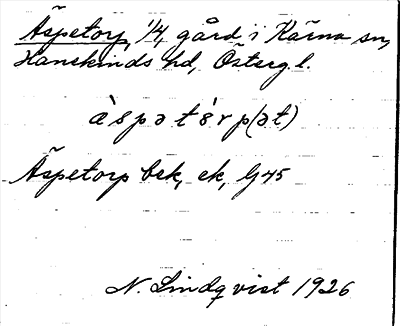 Äspetorp, 1/4, gård i Kärna sn,
Hanekinds hd, Östergl.
ä`spətɷ`rp(ət)
Äspetorp bek, ek, G45
N. Lindqvist 1926